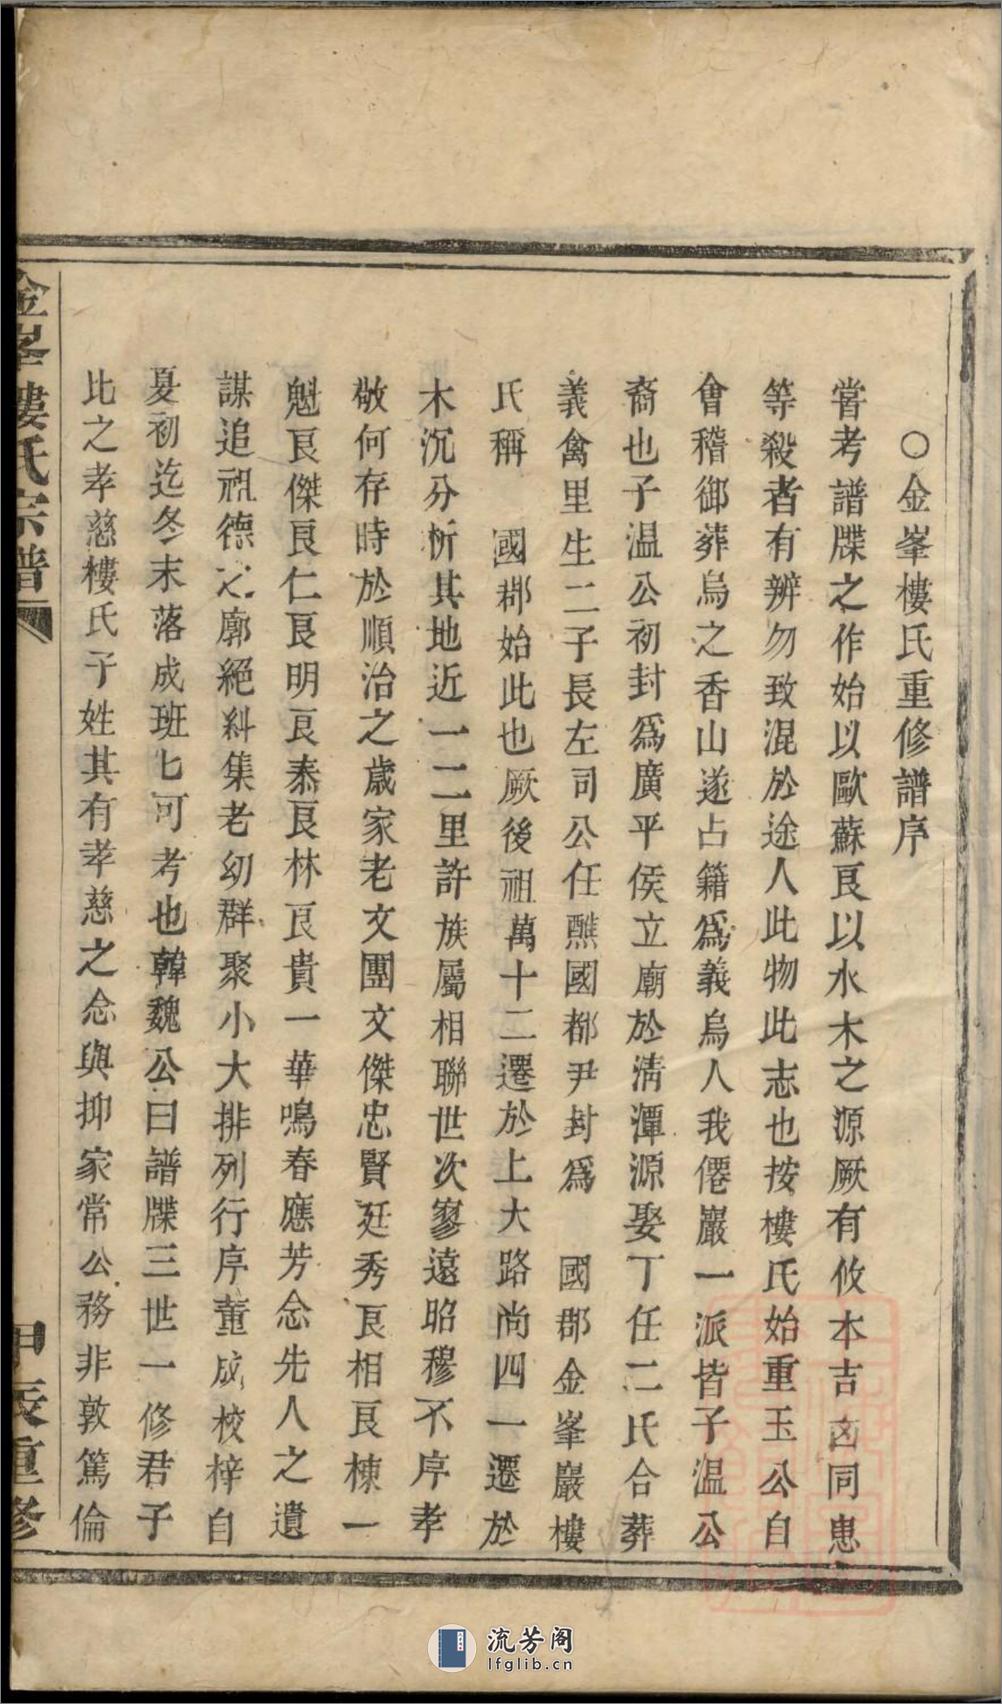 ○金峯樓氏重修譜序
嘗考譜牒之作始以歐蘇良以水木之源厥有攸本吉凶同患
等殺者有辨勿致混於途人此物此志也按樓氏始重玉公自
會稽御葬烏之香山遂占籍爲義烏人我僊巖一派皆子溫公
裔也子温公初封爲廣平侯立廟於淸潭源娶丁任二氏合葬
義禽里生二子長左司公任醮國都尹封爲 國郡金峯巖樓
氏稱 國郡始此也厥後祖萬十二遷於上大路尚四一遷於
木沉分析其地近一二里許族屬相聯世次寥遠昭穆不序孝
敬何存時於順治之歲家老文團文傑忠賢廷秀良相良棟一
魁良傑良仁良明良泰良林良貴一華鳴春應芳念先人之遺
謀追祖德之廓絕糾集老幼群聚小大排列行序董成校梓自
夏初迄冬末落成班七可考也韓魏公曰譜牒三世一修君子
比之孝慈樓氏子姓其有孝慈之念與抑家常公務非敦篤倫
金峯樓氏宗譜
甲辰重修
流芳阁
lfglib.cn